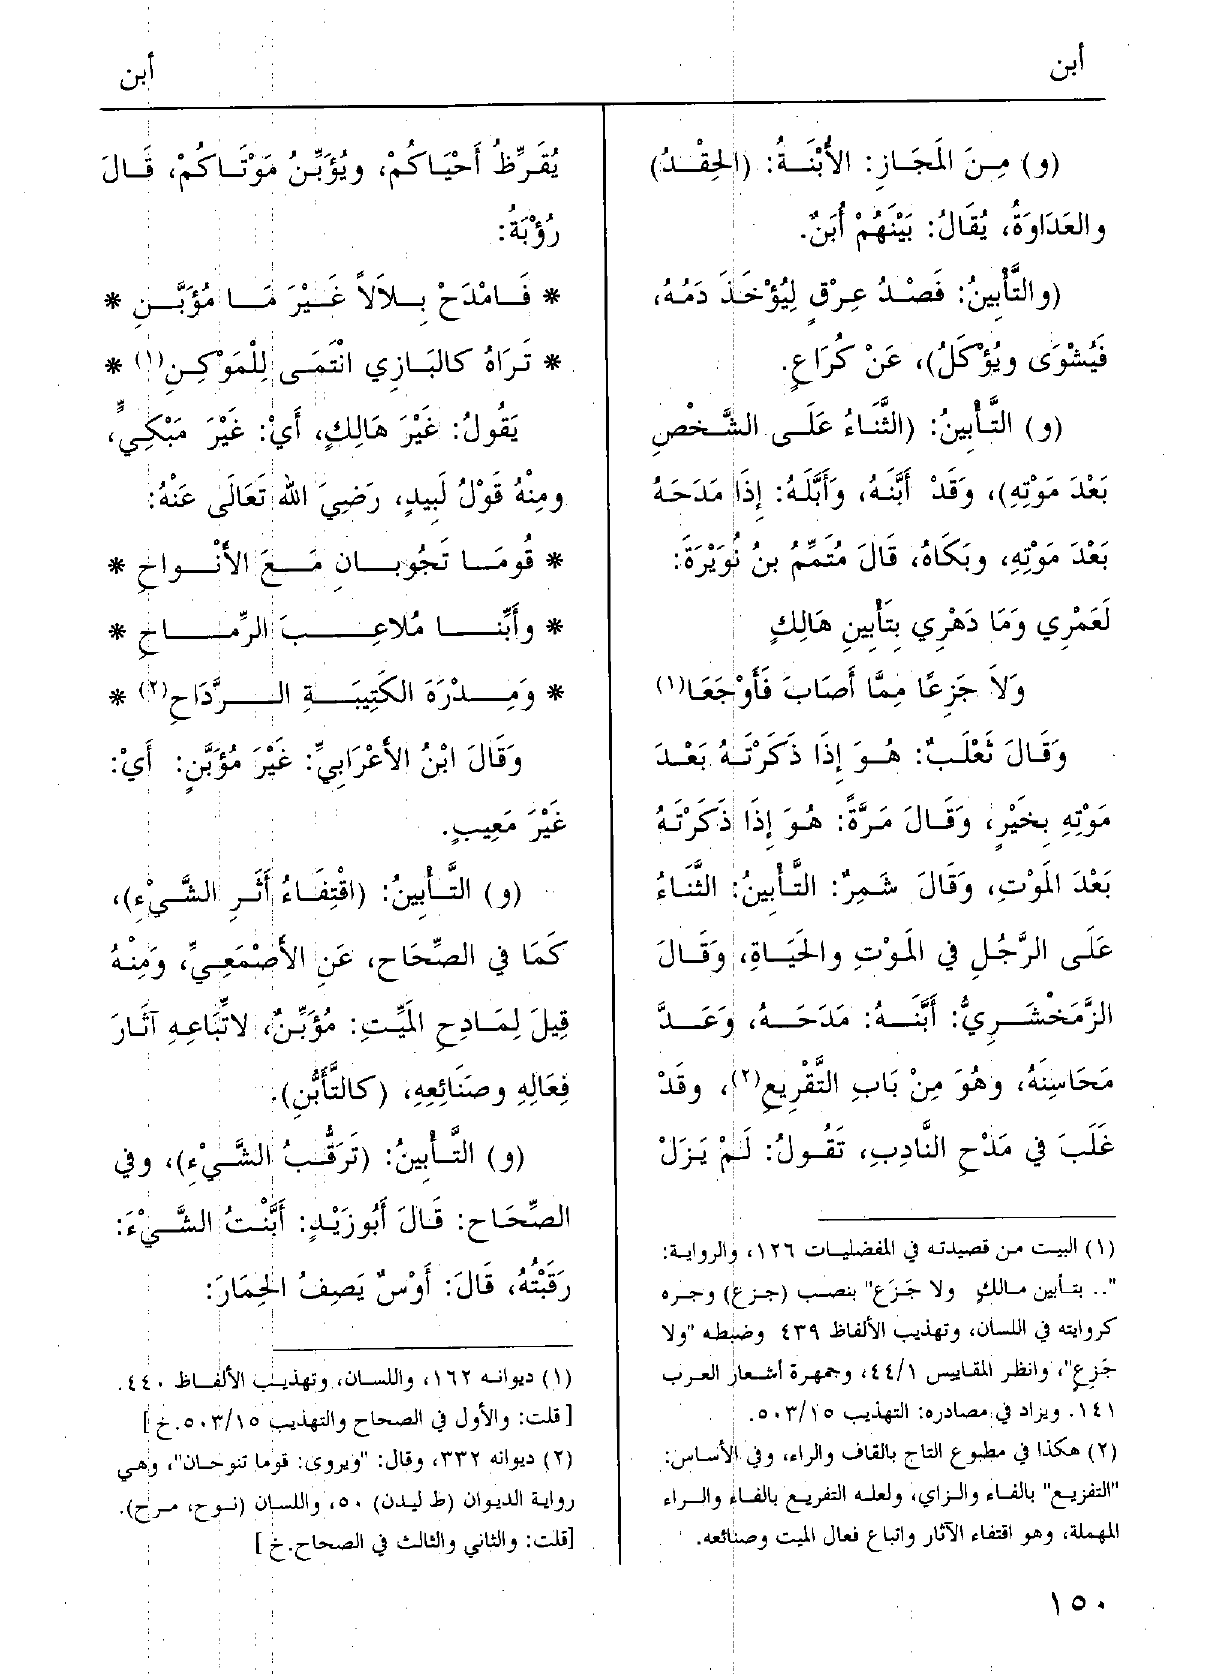 أبن
أبن
(و) مِنَ المَجَازِ: الأُبْنَةُ: (الحِقْدُ)
والعَدَاوَةُ، يُقَالُ: بَيْنَهُمْ أُبَنٌ.
(والتَّأْبِينُ: فَصْدُ عِرْقٍ لِيُؤْخَذَ دَمُهُ،
فَيُشْوَى ويُؤْكَلُ)، عَنْ كُرَاعٍ.
(و) التَّأْبِينُ: (الثَّنَاءُ عَلَى الشَّخْصِ
بَعْدَ مَوْتِهِ)، وَقَدْ أَبَّنَهُ، وَأَبَّلَهُ: إِذَا مَدَحَهُ
بَعْدَ مَوْتِهِ، وبَكَاهُ، قَالَ مُتَمِّمُ بنُ نُوَيْرَةَ:
لَعَمْرِي وَمَا دَهْرِي بِتَأْبِينِ هَالِكٍ
وَلاَ جَزِعًا مِمَّا أَصَابَ فَأَوْجَعَا(١)
وَقَالَ ثَعْلَبٌ: هُوَ إِذَا ذَكَرْتَهُ بَعْدَ
مَوْتِهِ بِخَيْرٍ، وَقَالَ مَرَّةً: هُوَ إِذَا ذَكَرْتَهُ
بَعْدَ المَوْتِ، وَقَالَ شَمِرٌ: التَّأْبِينُ: الثَّنَاءُ
عَلَى الرَّجُلِ فِي المَوْتِ والحَيَاةِ، وَقَالَ
الزَّمَخْشَرِيُّ: أَبَّنَهُ: مَدَحَهُ، وَعَدَّ
مَحَاسِنَهُ، وَهُوَ مِنْ بَابِ التَّقْرِيعِ(٢)، وقَدْ
غَلَبَ فِي مَدْحِ النَّادِبِ، تَقُولُ: لَمْ يَزَلْ
(١) البيت من قصيدته في المفضليات ١٢٦، والرواية:
".. بتأبين مالكٍ ولا جَزَع" بنصب (جزع) وجره
كروايته في اللسان، وتهذيب الألفاظ ٤٣٩ وضبطه "ولا
جَزِع"، وانظر المقاييس ٤٤/١، وجمهرة أشعار العرب
١٤١. ويزاد في مصادره: التهذيب ٥٠٣/١٥.
(٢) هكذا في مطبوع التاج بالقاف والراء، وفي الأساس:
"التفزيع" بالفاء والزاي، ولعله التفريع بالفاء والراء
المهملة، وهو اقتفاء الآثار واتباع فعال الميت وصنائعه.
يُقَرِّظُ أَحْيَاكُمْ، ويُؤَبِّنُ مَوْتَاكُمْ، قَالَ
رُؤْبَةُ:
* فَامْدَحْ بِلاَلاً غَيْرَ مَا مُؤَبَّنِ *
* تَرَاهُ كالبَازِي انْتَمَى لِلْمَوْكِنِ(١) *
يَقُولُ: غَيْرَ هَالِكٍ، أَيْ: غَيْرَ مَبْكِيٍّ،
ومِنْهُ قَوْلُ لَبِيدٍ، رَضِيَ الله تَعَالَى عَنْهُ:
* قُومَا تَجُوبَانِ مَعَ الأَنْوَاحِ *
* وأَبِّنَا مُلاَعِبَ الرِّمَاحِ *
* وَمِدْرَهَ الكَتِيبَةِ الرَّدَاحِ(٢) *
وَقَالَ ابْنُ الأَعْرَابِيِّ: غَيْرَ مُؤَبَّنٍ: أَيْ:
غَيْرَ مَعِيبٍ.
(و) التَّأْبِينُ: (اقْتِفَاءُ أَثَرِ الشَّيْءِ)،
كَمَا فِي الصِّحَاح، عَنِ الأَصْمَعِيِّ، وَمِنْهُ
قِيلَ لِمَادِحِ المَيِّتِ: مُؤَبِّنٌ، لاتِّبَاعِهِ آثَارَ
فِعَالِهِ وصَنَائِعِهِ، (كالتَّأَبُّنِ).
(و) التَّأْبِينُ: (تَرَقُّبُ الشَّيْءِ)، وفي
الصِّحَاح: قَالَ أَبُو زَيْدٍ: أَبَّنْتُ الشَّيْءَ:
رَقَبْتُهُ، قَالَ: أَوْسٌ يَصِفُ الحِمَارَ:
(١) ديوانه ١٦٢، واللسان، وتهذيب الألفاظ ٤٤٠.
[قلت: والأول في الصحاح والتهذيب ٥٠٣/١٥.خ]
(٢) ديوانه ٣٣٢، وقال: "ويروى: قوما تنوحان"، وهي
رواية الديوان (ط ليدن) ٥٠، واللسان (نوح، مرح).
[قلت: والثاني والثالث في الصحاح.خ]
١٥٠